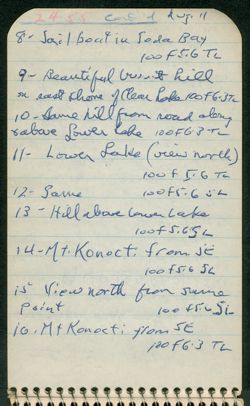 24-55 Cont'd Aug. 11
8- Sailboat in Soda Bay
100 f5.6 TL
9- Beautiful burnt hill
on east shore of Clear Lake 100 f6.3 TL
10- Same hill from road along
above Lower Lake 100 f6.3 TL
11- Lower Lake (view north)
100 f 5.6 TL
12- Same 100 f5.6 SL
13- Hill above Lower Lake
100 f5.6 SL
14- Mt. Konocti from SE
100 f5.6 SL
15- View north from same
point 100 f5.6 SL
16. Mt Konocti from SE
100 f6.3 TL